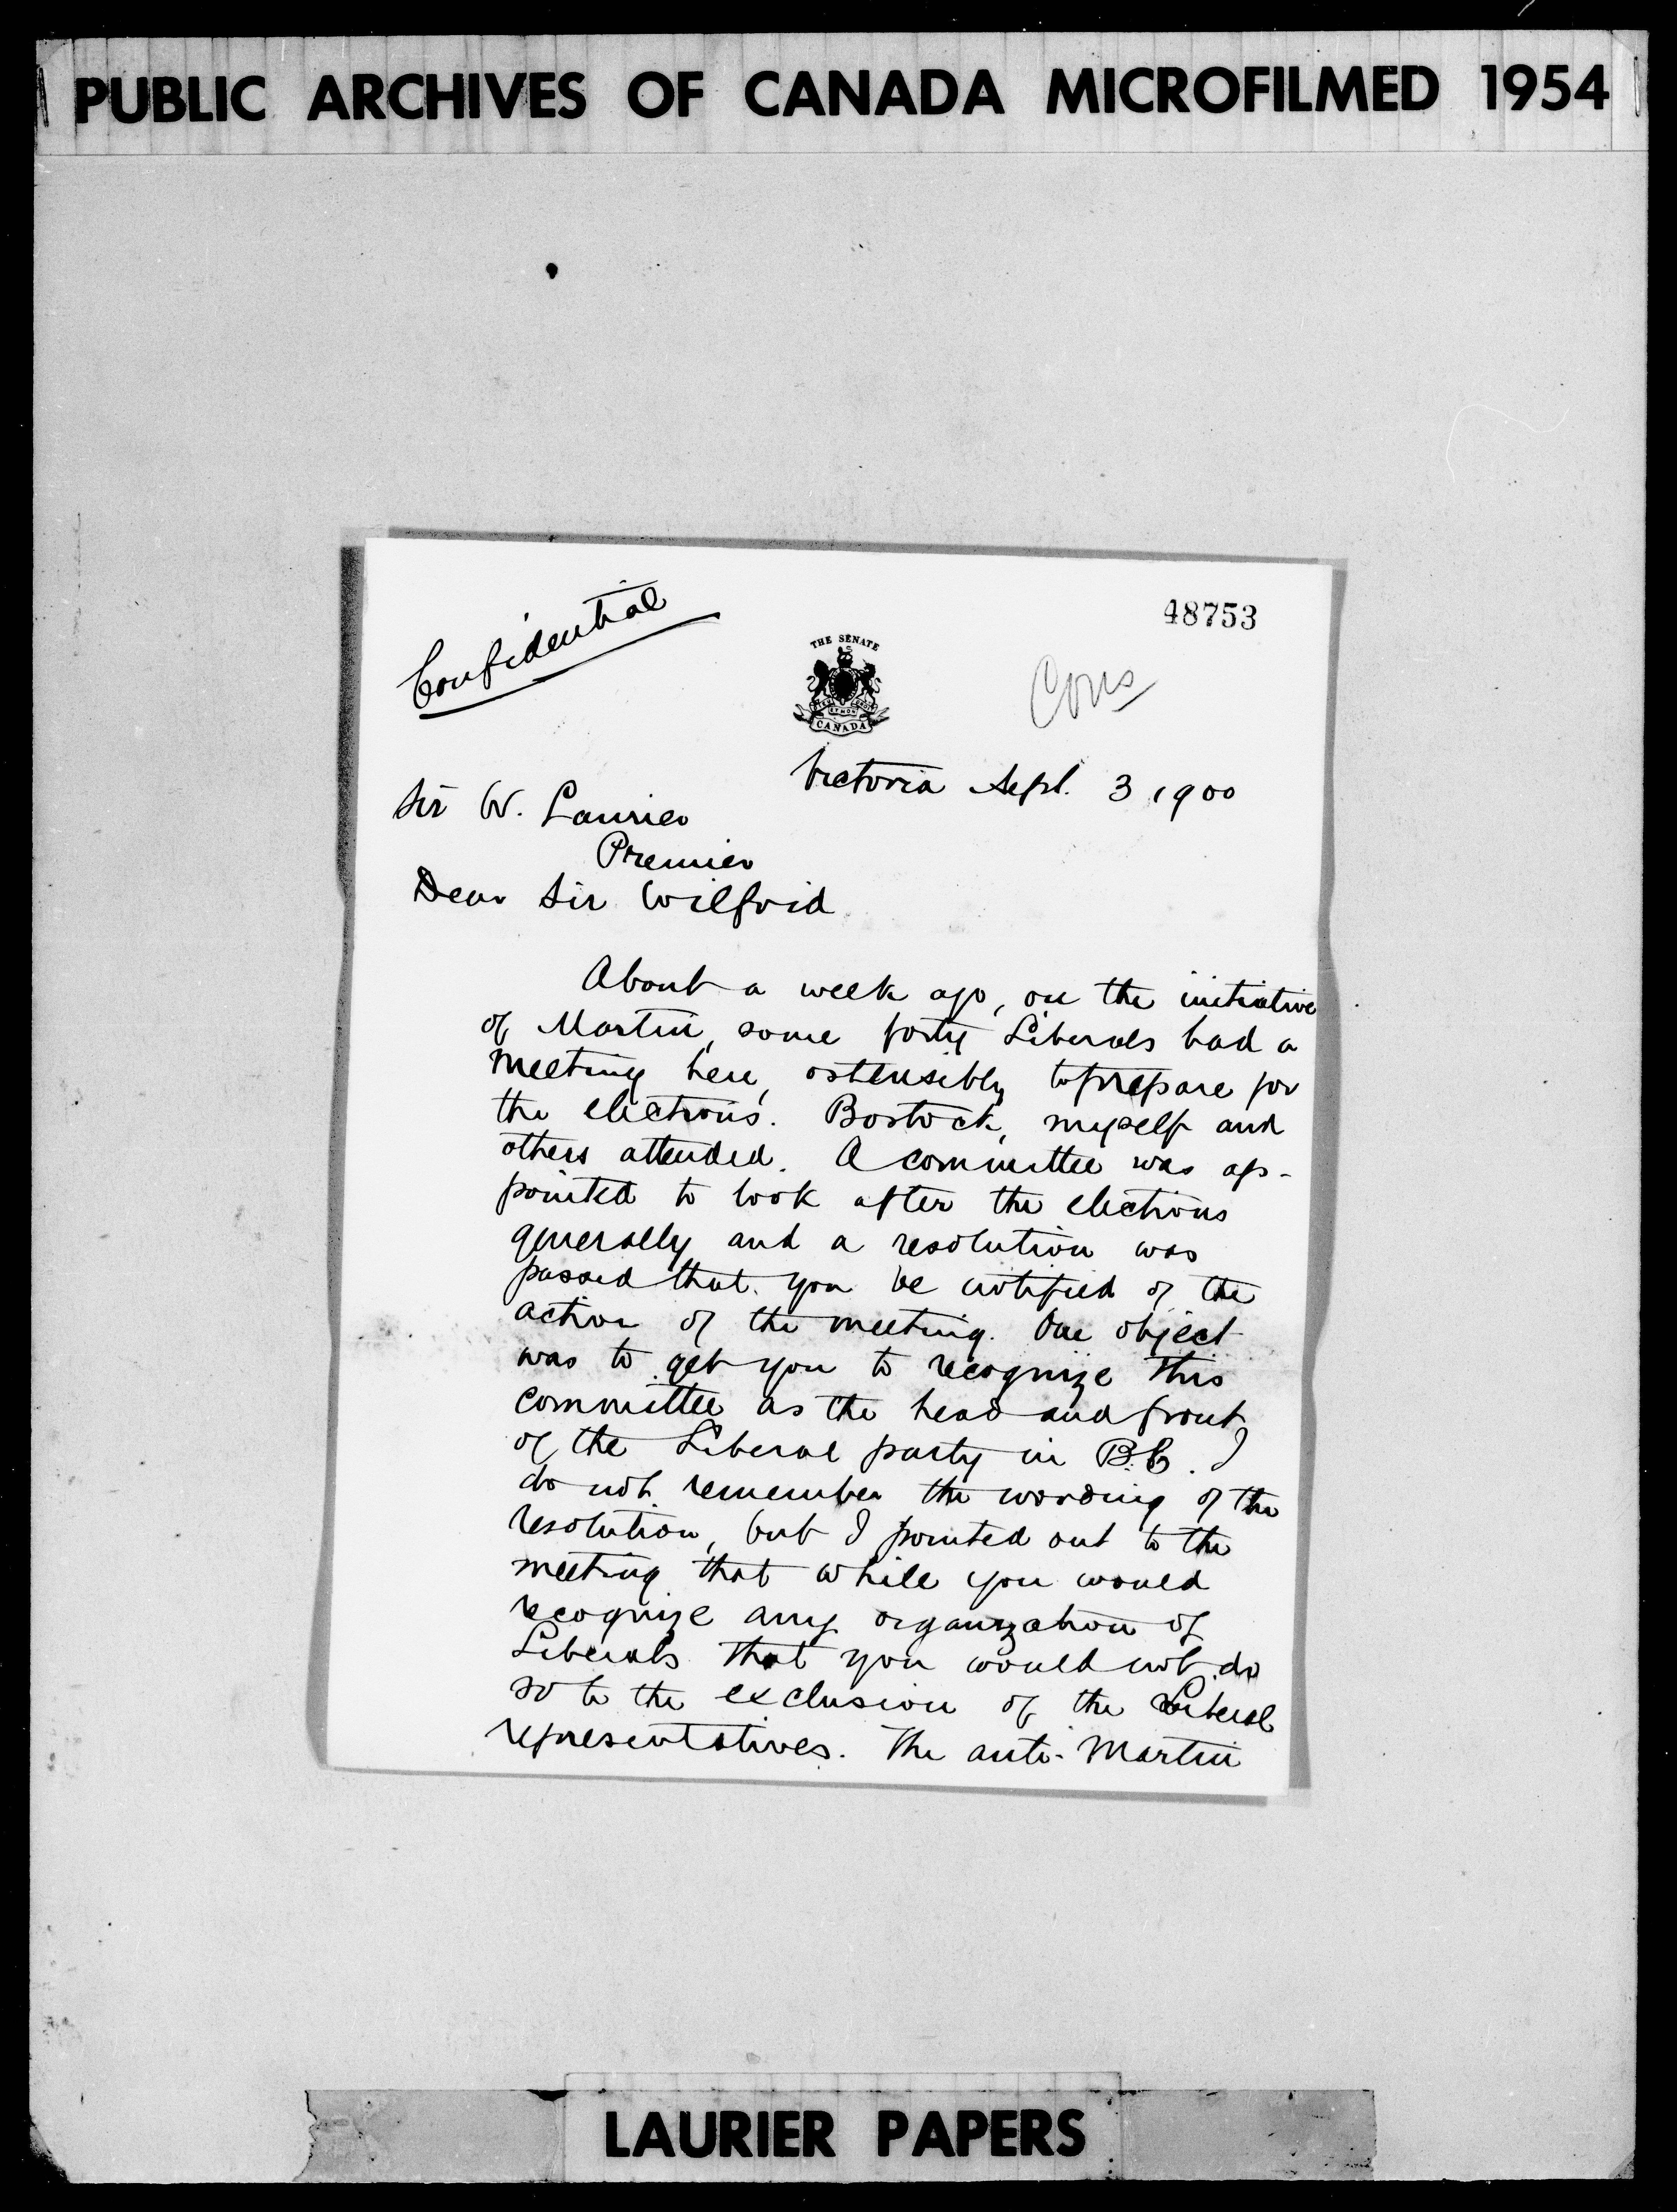 PUBLIC ARCHIVES OF CANADA MICROFILMED 1954
48753
Confidential
THE SENATE
CANADA
Cons
Victoria Sept. 3 1900
Sir W. Laurier
Premier
Dear Sir Wilfrid
About a week ago, on the initiative
of Martin, some forty Liberals had a
meeting here, ostensibly to prepare for
the elections. Bostock, myself and
others attended. A committee was ap-
pointed to look after the elections
generally and a resolution was
passed that you be notified of the
action of the meeting. One object
was to get you to recognize this
committee as the head and front
of the Liberal party in B.C. I
do not remember the wording of the
resolution, but I pointed out to the
meeting that while you would
recognize any organization of
Liberals that you would not do
so to the exclusion of the Liberal
representatives. The anti-Martin
LAURIER PAPERS